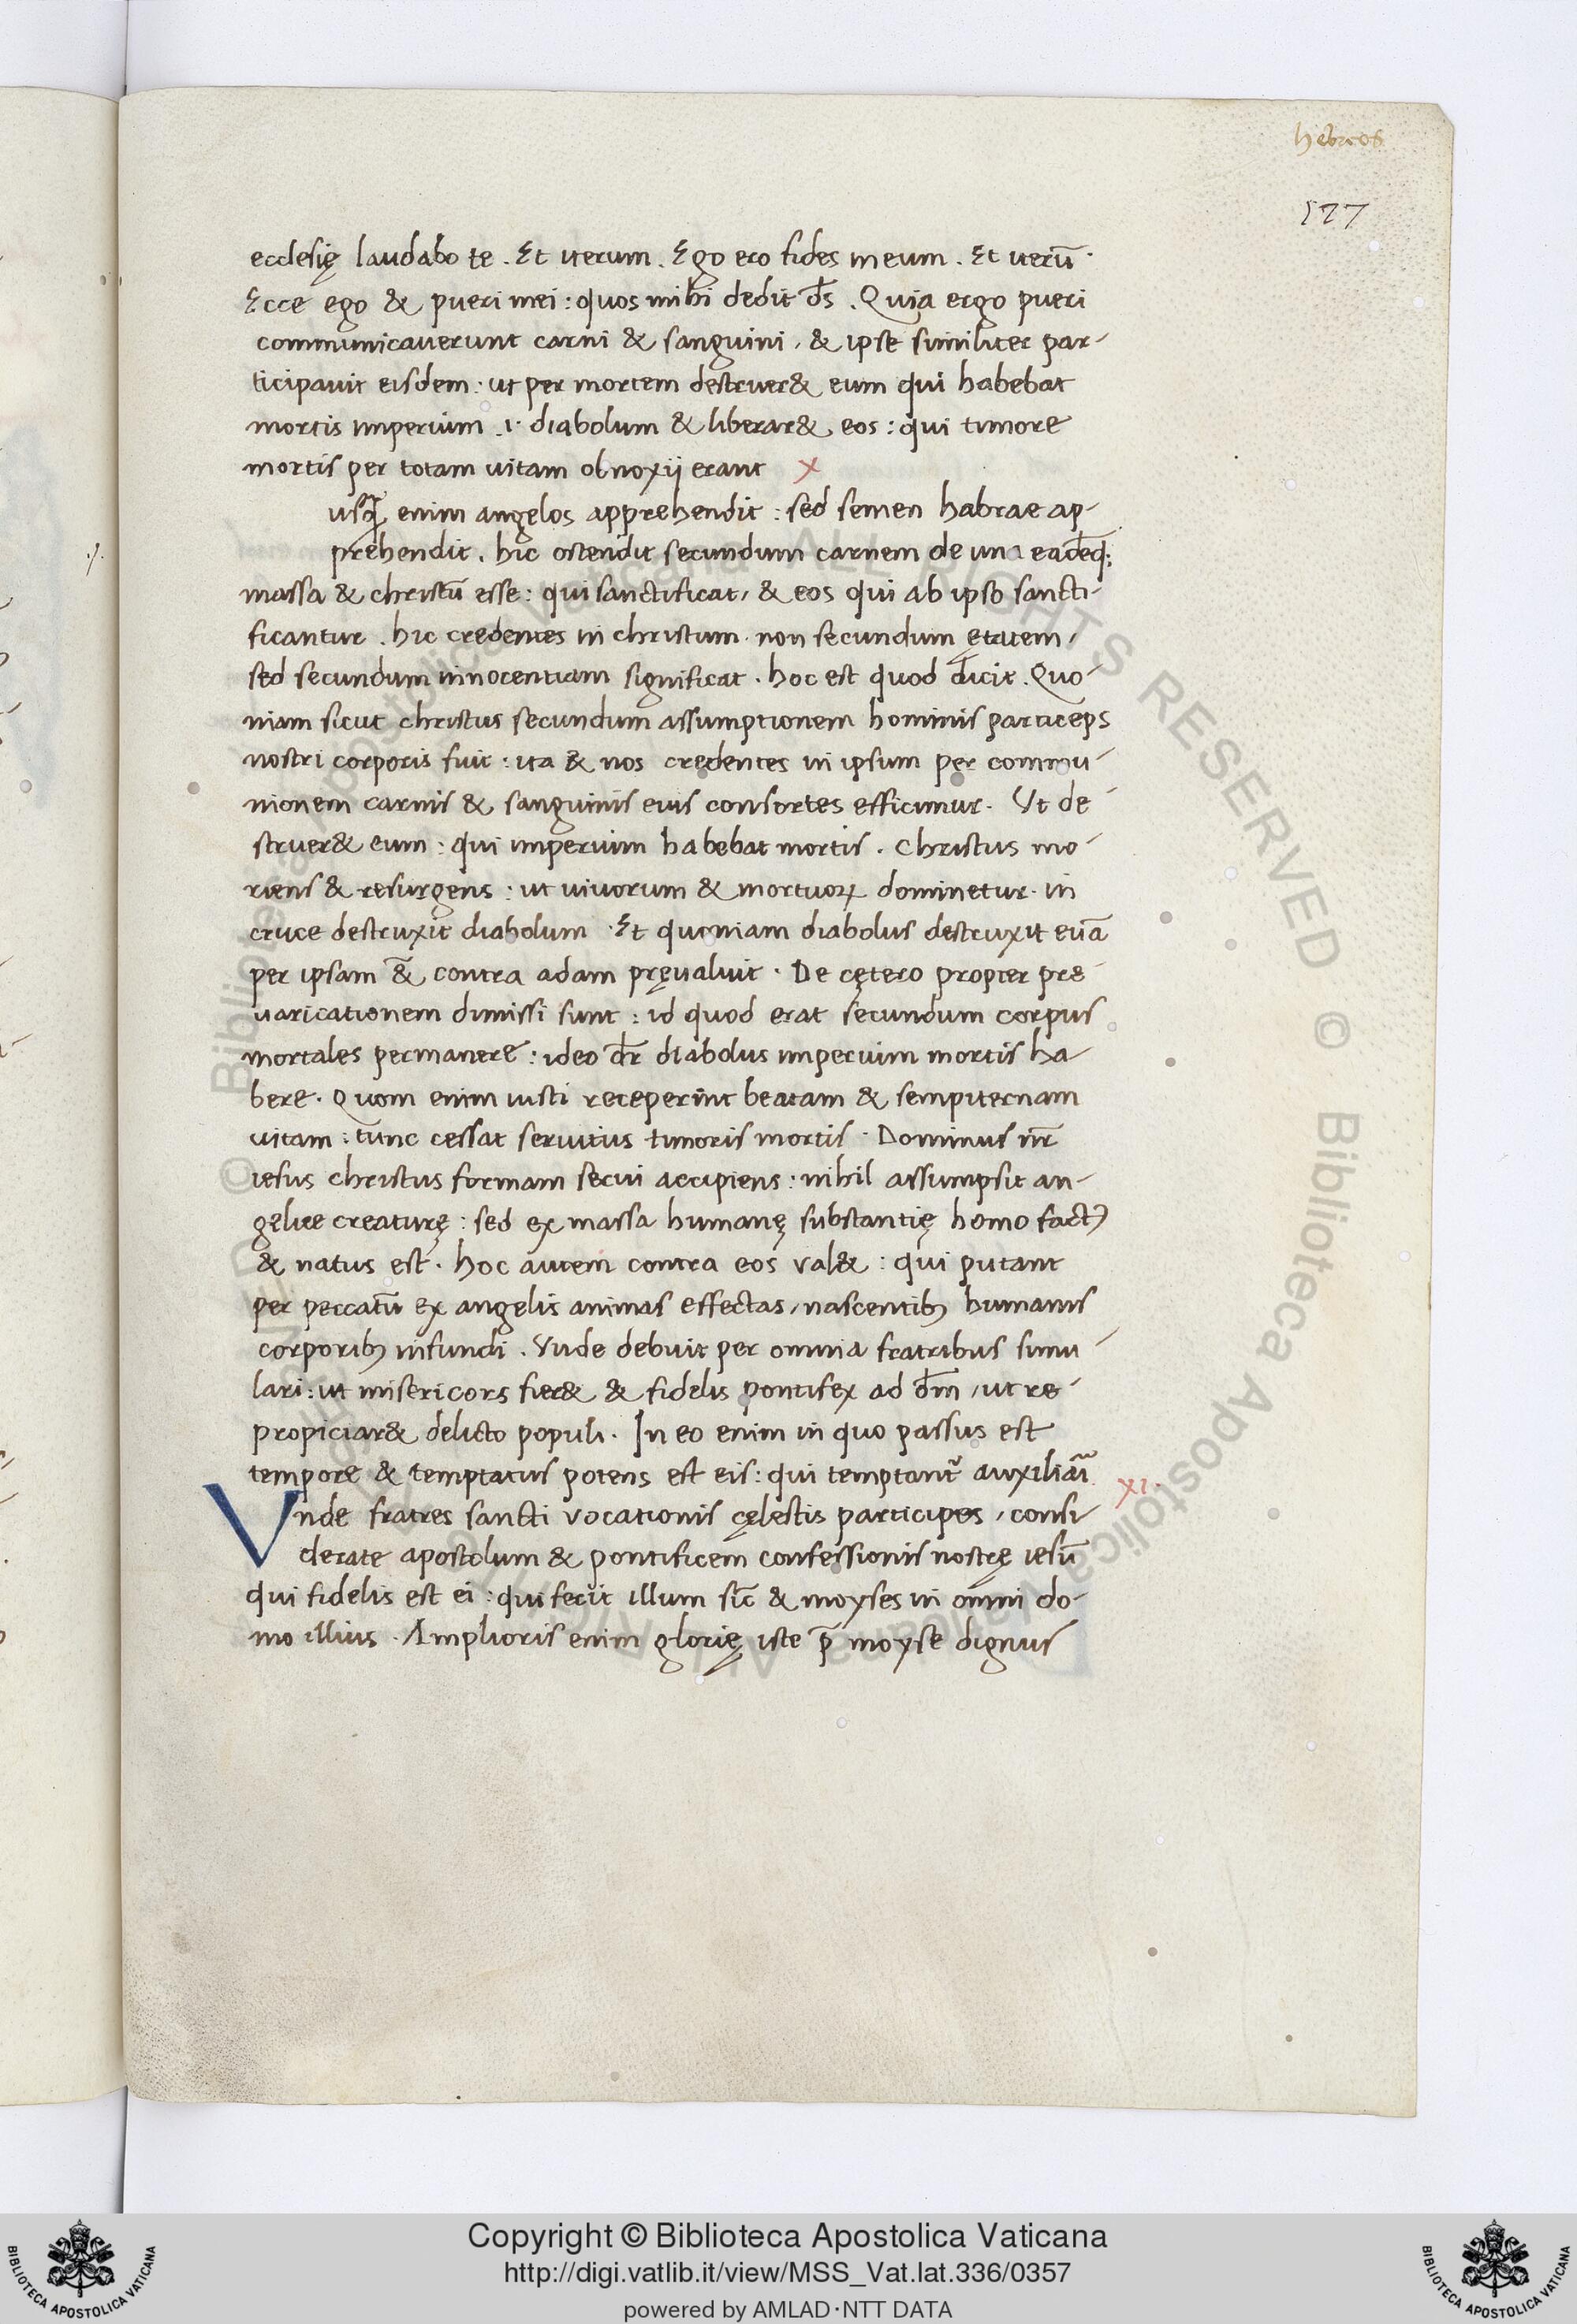 hebreos
177
ecclesię laudabo te . Et iterum . Ego ero fides in eum . Et iterū .
Ecce ego & pueri mei : quos mihi dedit d̄s . Quia ergo pueri
communicaverunt carni & sanguini , & ipse similiter par-
ticipavit eisdem : ut per mortem destruer& eum qui habebat
mortis imperium .i. diabolum & liberar& eos : qui timore
mortis per totam vitam obnoxij erant X
usq̄ enim angelos apprehendit : sed semen habrae ap-
prehendit . hic ostendit secundum carnem de una eadēq;
massa & christū esse : qui sanctificat , & eos qui ab ipso sancti-
ficantur . hic credentes in christum . non secundum ętatem ,
sed secundum innocentiam significat . hoc est quod dicit . Quo-
niam sicut christus secundum assumptionem hominis particeps
nostri corporis fuit : ita & nos credentes in ipsum per commu-
nionem carnis & sanguinis eius consortes efficimur . Ut de-
struer& eum : qui imperium habebat mortis . Christus mo-
riens & resurgens : ut vivorum & mortuoꝝ dominetur . in
cruce destruxit diabolum . Et quoniam diabolus destruxit euā
per ipsam &̄ contra adam pręvaluit . De cętero propter pre-
varicationem dimissi sunt : id quod erat secundum corpus
mortales permanere : ideo dr̄ diabolus imperium mortis ha-
bere . Quom enim iusti receperint beatam & sempiternam
vitam : tunc cessat servitius timoris mortis . Dominus nr̄
iesus christus formam servi accipiens : nihil assumpsit an-
gelice creaturę : sed ex massa humanę substantię homo factꝰ
& natus est . hoc autem contra eos val& : qui putant
per peccatū ex angelis animas effectas , nascentibꝫ humanis
corporibꝫ infundi . Unde debuit per omnia fratribus simi-
lari : ut misericors fier& & fidelis pontifex ad dm̄ , ut re-
propiciar& delicto populi . In eo enim in quo passus est
tempore & temptatus potens est eis : qui temptant᷑ auxiliāi XI.
Unde fratres sancti vocationis cęlestis participes , consi-
derate apostolum & pontificem confessionis nostrę iesū
qui fidelis est ei : qui fecit illum sic̄ & moyses in omni do-
mo illius . Amplioris enim glorię iste p̄ moyse dignus
© Biblioteca Apostolica Vaticana ALL RIGHTS RESERVED
Copyright © Biblioteca Apostolica Vaticana
http://digi.vatlib.it/view/MSS_Vat.lat.336/0357
powered by AMLAD·NTT DATA
BIBLIOTECA APOSTOLICA VATICANA
BIBLIOTECA APOSTOLICA VATICANA